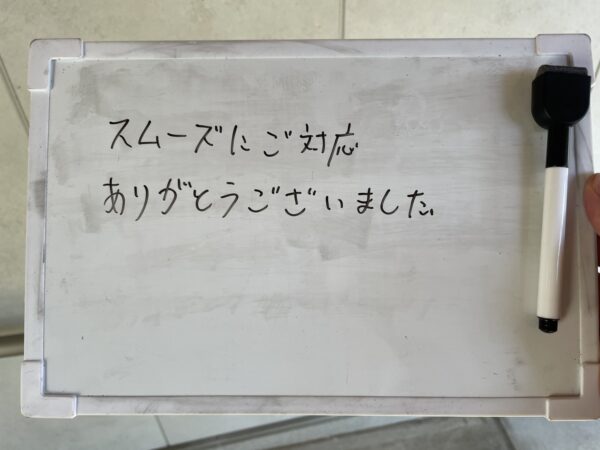 スムーズにご対応
ありがとうございました